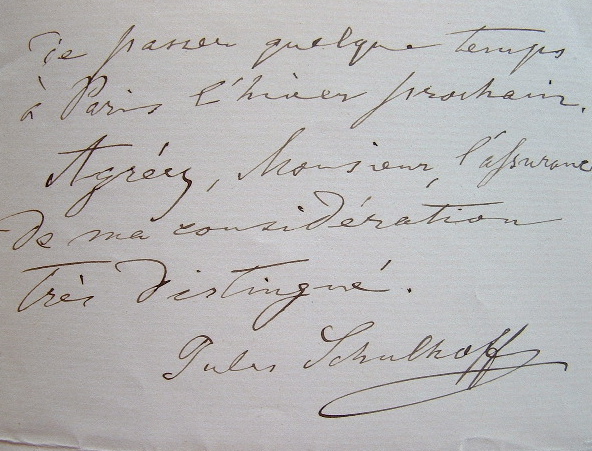 de passer quelque temps
à Paris l'hiver prochain.
Agréez, Monsieur, l'assurance
de ma considération
très distingué.
Jules Schulhoff